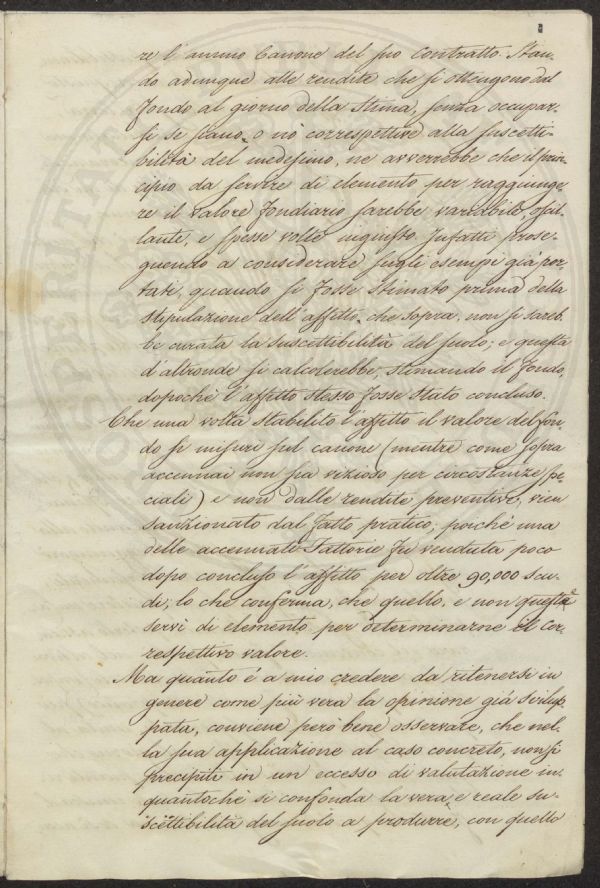 re l'annuo Canone del suo Contratto. Stan-
do adunque alle rendite che si ottengono dal
fondo al giorno della stima, senza occupar-
si se siano, o nò correspettive alla suscetti-
bilità del medesimo, ne avverrebbe che il prin-
cipio da servire di elemento per raggiunge-
re il valore fondiario sarebbe variabile, oscil-
lante, e spesse volte ingiusto. Infatti prose-
guendo a considerare sugli esempi già por-
tati, quando si fosse stimato prima della
stipulazione dell'affitto, che sopra, non si sareb-
be curata la suscettibilità del suolo; e questa
d'altronde si calcolerebbe, stimando il fondo,
dopochè l'affitto stesso fosse stato concluso.
Che una volta stabilito l'affitto il valore del fon-
do si misuri sul canone (mentre come sopra
accennai non sia vizioso per circostanze spe-
ciali) e non dalle rendite preventive, vien
sanzionato dal fatto pratico; poichè una
delle accennate Fattorie fu venduta poco
dopo concluso l'affitto per oltre 90,000 scu-
di; lo che conferma, che quello, e non queste
servì di elemento per determinarne il cor-
respettivo valore.
Ma quanto è a mio credere da ritenersi in
genere come più vera la opinione già svilup-
pata, conviene però bene osservare, che nel-
la sua applicazione al caso concreto, non si
precipiti in un eccesso di valutazione in-
quantochè si confonda la vera, e reale su-
scettibilità del suolo a produrre, con quello
PROSPERITATE